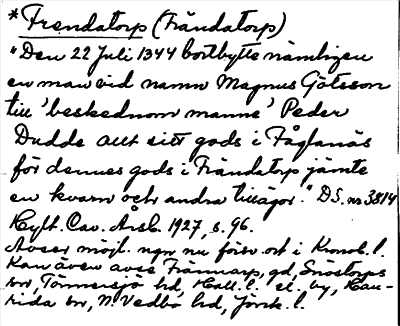 *Frendatorp (Frändatorp)
"Den 22 Juli 1344 bortbytte nämligen
en man vid namn Magnus Götsson
till 'beskednom manne' Peder
Dudde allt sitt gods i Fåglanäs
för dennes gods i Frändatorp jämte
en kvarn och andra tillägor." DS. nr 3814
Hylt. Cav. Årsb. 1927, s. 96.
Avser möjl. ngn nu försv. ort i Kronob. l.
Kan även avse Frännarp, gd, Snöstorps
sn, Tönnersjö hd, Hall. l. el. by, Hau-
rida sn, N. Vedbo hd, Jönk. l.